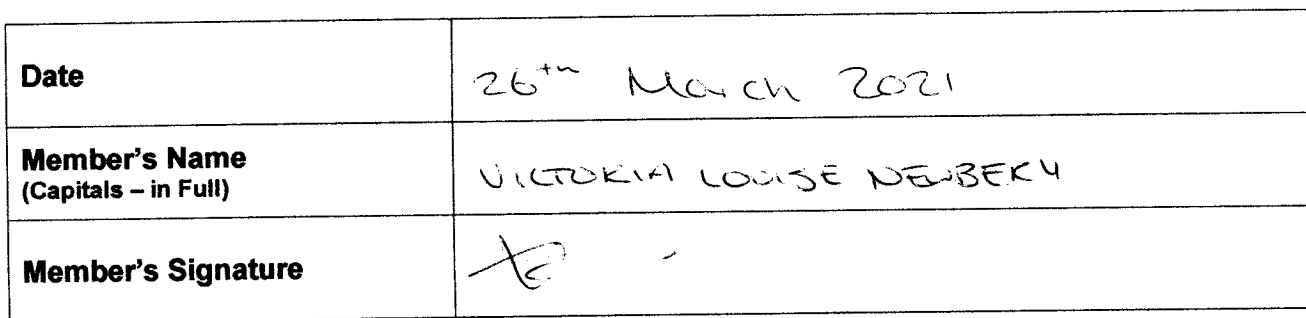 Date 26th March 2021
Member's Name
(Capitals – in Full) VICTORIA LOUISE NEWBERY
Member's Signature